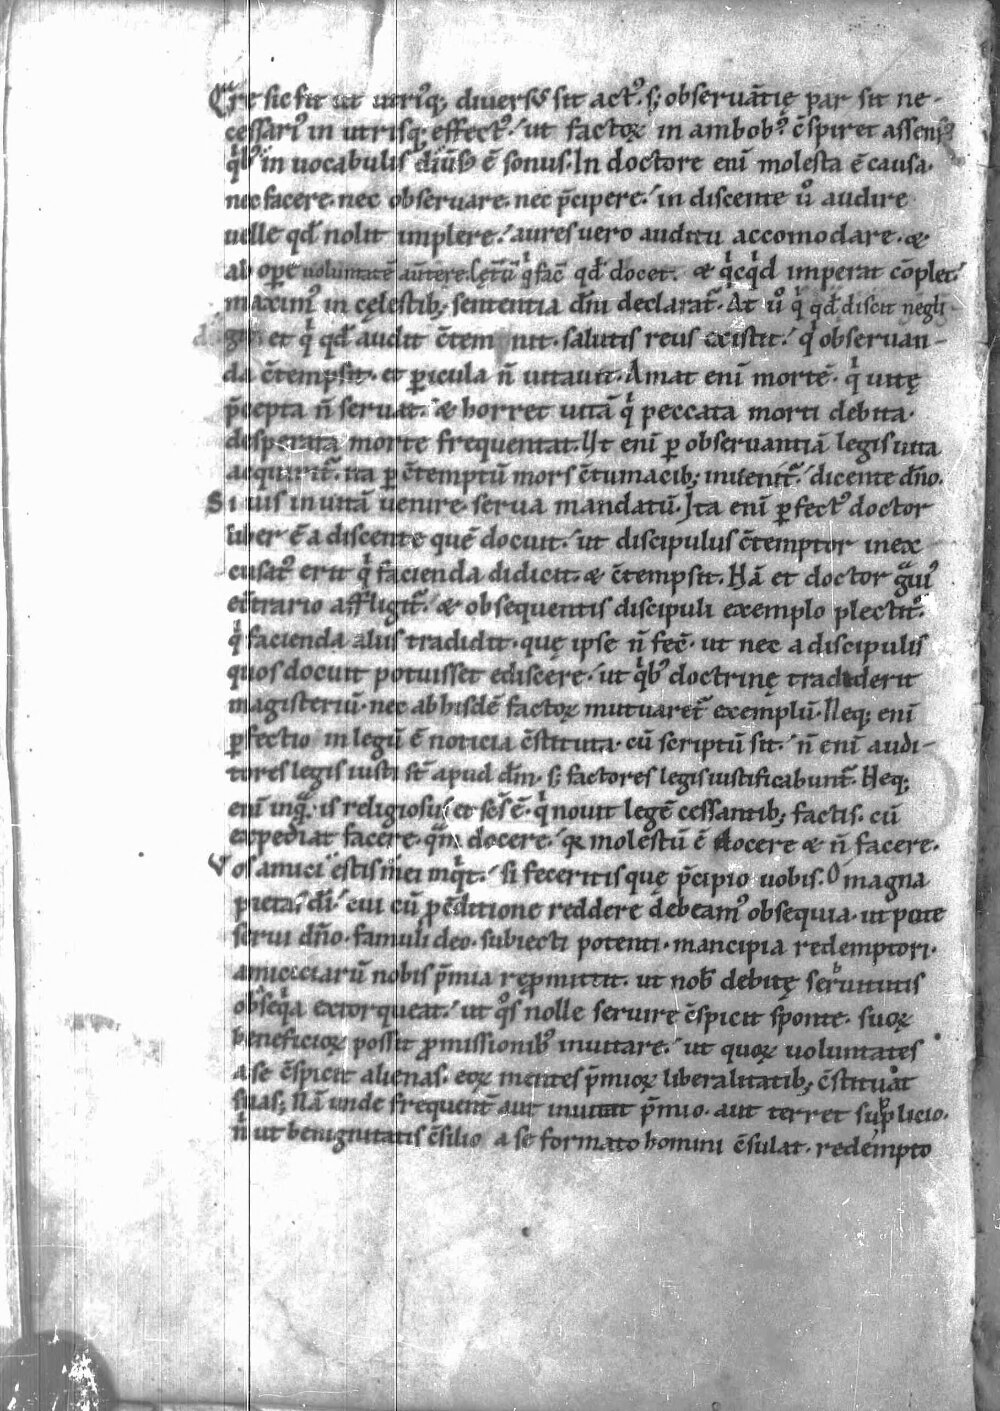 Q̄re sic fit ut utriꝰq; diuersꝰ sit actꝰ. s; obseruātię par sit ne-
cessariꝰ in utrisq; effectꝰ. ut factoꝝ in ambobꝰ c̄spiret assensꝰ
qͥbꝰ in uocabulis diūsꝰ ē sonus. In doctore eni̅ molesta ē causa.
nec facere. nec obseruare. nec p̄cipere. in discente ů audire
uelle qđ nolit implere. aures uero auditu accomodare. &
ab oꝑe uoluntatē auertere. qͥ fac̄ qđ docet. & qͥcqͥd imperat cōplet.
maximꝰ in cęlestib; sententia dn̄i declarat᷑. At ů qͥ qđ discit negli-
git et qͥ qđ audit c̄tempnit. salutis reus existit. qͥ obseruan-
da c̄tempsit. et ꝑicula n̄ uitauit. Amat eni̅ mortē. qͥ uitę
p̄cepta n̄ seruat. & horret uitā qͥ peccata morti debita.
desperata morte frequentat. Ut eni̅ ꝑ obseruantiā legis uita
acquirit᷑. ita ꝑ c̄temptū mors c̄tumacib; inuenit᷑. dicente dn̄o.
Si uis in uitā uenire. serua mandatū. Ita eni̅ ꝑfectꝰ doctor
liber ē a discente quē docuit. ut discipulus c̄temptor inex
cusatꝰ erit qͥ facienda didicit. & c̄tempsit. Nā et doctor gͣuiꝰ
ec̄trario affligit᷑. & obsequentis discipuli exemplo plectit᷑.
qͥ facienda aliis tradidit. quę ipse n̄ fec̄. ut nec a discipulis
quos docuit potuisset ediscere. ut qͥbꝰ doctrinę tradiderit
magisteriū. nec ab hisdē factoꝝ mutuaret᷑ exemplū. Neq; eni̅
ꝑfectio in legū ē noticia c̄stituta. cū scriptū sit. n̄ eni̅ audi-
tores legis iusti st̄ apud dm̄. s; factores legis iustificabunt᷑. Neq;
eni̅ inqͣ. is religiosus et sc̄s ē. qͥ nouit legē cessantib; factis. cū
expediat facere. qͣm docere. qꝛ molestū ē docere & n̄ facere.
Vos amici estis mei inqͥt. si feceritis quę p̄cipio uobis. O magna
pietas di̅. cui cū ꝓ c̄ditione reddere debeamꝰ obsequia. ut pote
serui dn̄o. famuli deo. subiecti potenti. mancipia redemptori.
amicciciarū nobis p̄mia reꝓmittit. ut nob̄ debitę seruitutis
obseqͥa extorqueat. ut qͦs nolle seruire c̄spicit sponte. suoꝝ
beneficioꝝ possit ꝓmissionibꝰ inuitare. ut quoꝝ uoluntates
a se c̄spicit alienas. eoꝝ mentes p̄mioꝝ liberalitatib; c̄stituat
suas; Nā unde frequent̄ aut inuitat p̄mio. aut terret supplicio.
nͥ ut benignitatis c̄silio a se formato homini c̄sulat. redempto